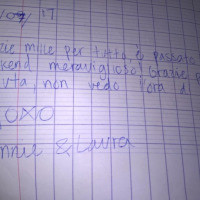 17
zie mille per tutto è passato
kend meraviglioso! Grazie p
uta, non vedo l'ora d
OXO
nnie & Laura